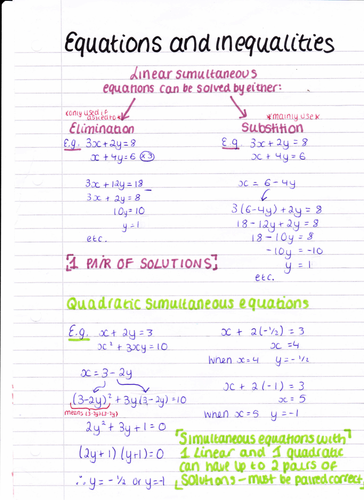 Equations and inequalities
Linear simultaneous
equations can be solved by either:
*only used if
asked to*
Elimination
E.g. 3x + 2y = 8
x + 4y = 6 (×3)
3x + 12y = 18
3x + 2y = 8
10y = 10
y = 1
etc.
*mainly use*
Substition
E.g. 3x + 2y = 8
x + 4y = 6
x = 6 - 4y
3(6-4y) + 2y = 8
18 - 12y + 2y = 8
18 - 10y = 8
- 10y = -10
y = 1
etc.
[1 PAIR OF SOLUTIONS]
Quadratic simultaneous equations
E.g. x + 2y = 3
x² + 3xy = 10
x = 3 - 2y
(3-2y)² + 3y(3-2y) = 10
means (3-2y)(3-2y)
2y² + 3y + 1 = 0
(2y+1)(y+1) = 0
∴ y = -½ or y = -1
x + 2(-½) = 3
x = 4
when x = 4 y = -½
x + 2(-1) = 3
x = 5
when x = 5 y = -1
[Simultaneous equations with
1 linear and 1 quadratic
can have up to 2 pairs of
solutions - must be paired correc